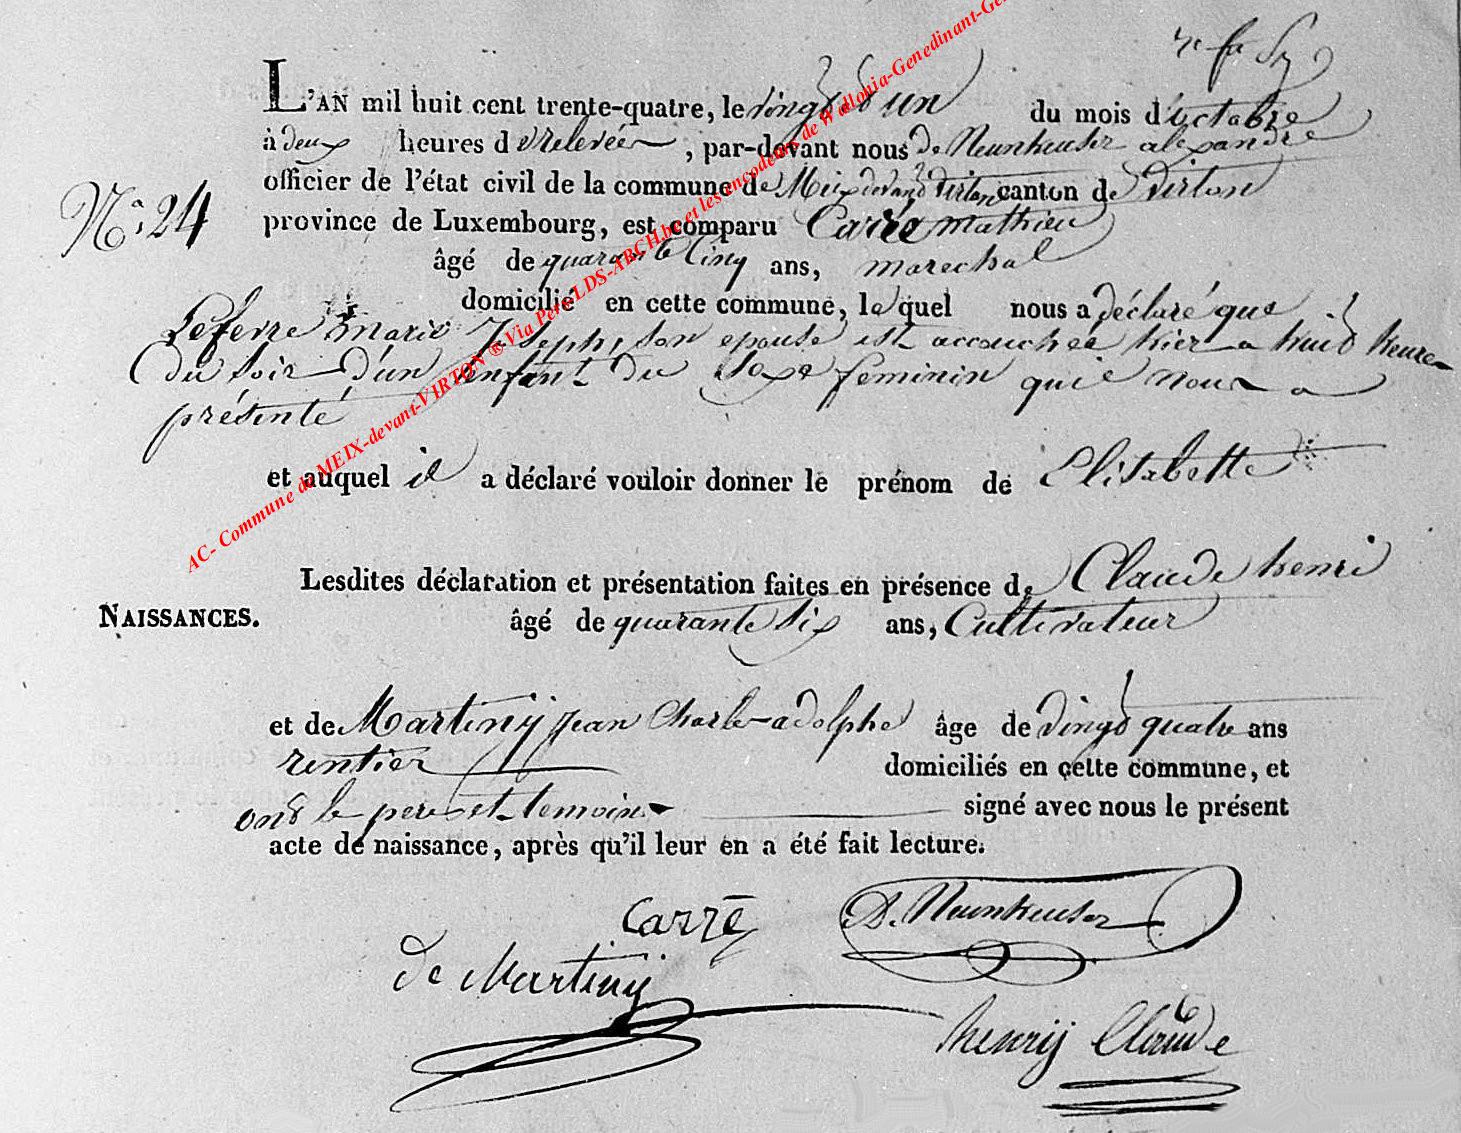 L'AN mil huit cent trente-quatre, le vingt et un du mois d'octobre
à deux heures de relevée, par-devant nous De Neunheuser alexandre
officier de l'état civil de la commune de Meix devant Virton canton de Virton
N° 24
province de Luxembourg, est comparu Carré mathieu
âgé de quarante cinq ans, marechal
domicilié en cette commune, lequel nous a déclaré que
Lefevre marie Joseph, son epouse est accouchée hier a huit heures
du soir d'un enfant du Sexe feminin qu'il nous a
présenté
et auquel il a déclaré vouloir donner le prénom de Elisabette
Lesdites déclaration et présentation faites en présence de Claude henri
NAISSANCES.
âgé de quarante six ans, Cultivateur
et de Martiny jean Charles adolphe âge de vingt quatre ans
rentier domiciliés en cette commune, et
ont le pere et temoins signé avec nous le présent
acte de naissance, après qu'il leur en a été fait lecture.
Carré D. Neunheuser
de Martiny
henry Claude
AC- Commune de MEIX-devant-VIRTON ® Via Pers-LDS-ABCH.be et les encodeurs de Wallonia-Genedinant-Gen